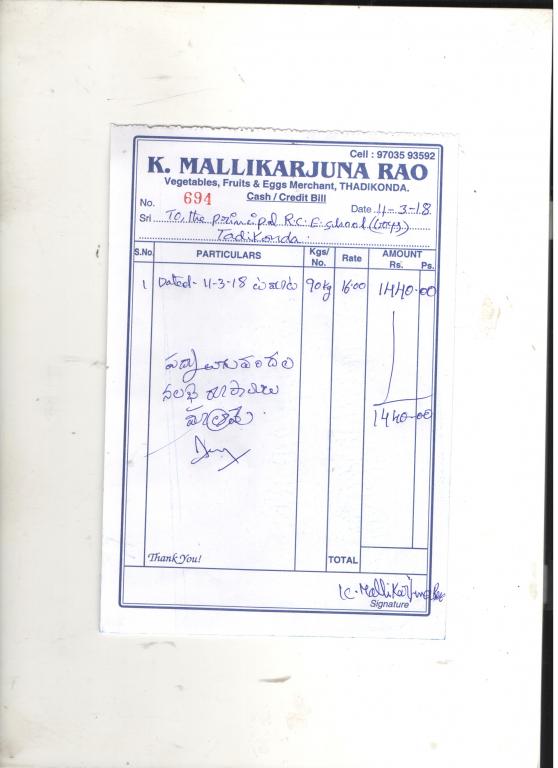 Cell : 97035 93592
K. MALLIKARJUNA RAO
Vegetables, Fruits & Eggs Merchant, THADIKONDA.
Cash / Credit Bill
No. 694
Date 11-3-18
Sri To, the principal R.C.E. School (boys)
Tadikonda.
S.No. PARTICULARS Kgs/No. Rate AMOUNT Rs. Ps.
1 Dated- 11-3-18 90kg 16.00 1440-00
నలభై రూపాయలు
మాత్రమే
1440-00
Thank You! TOTAL
K. Mallikarjuna Rao
Signature